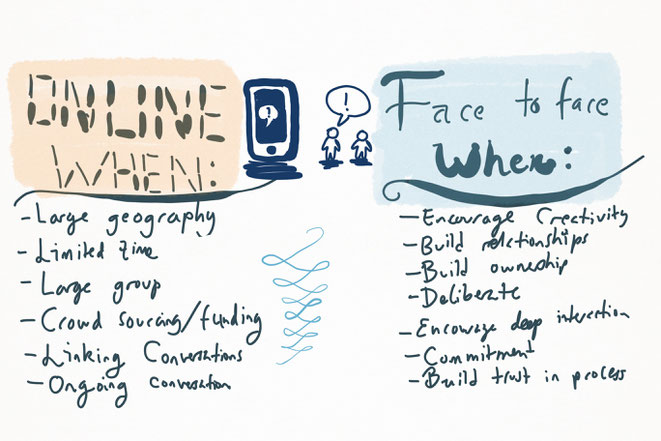 ONLINE
WHEN:
- Large geography
- Limited time
- Large group
- Crowd sourcing/funding
- Linking Conversations
- Ongoing conversation
!
!
Face to face
When:
- Encourage Creativity
- Build relationships
- Build ownership
- Deliberate
- Encourage deep interaction
- Commitment
- Build trust in process